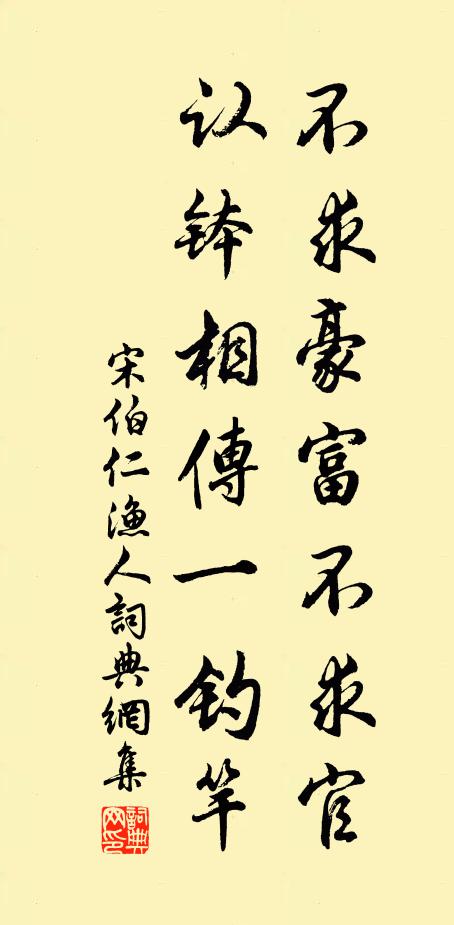 不求豪富不求官
认钵相傳一釣竿
宋伯仁漁人詞典網集
詞典網印